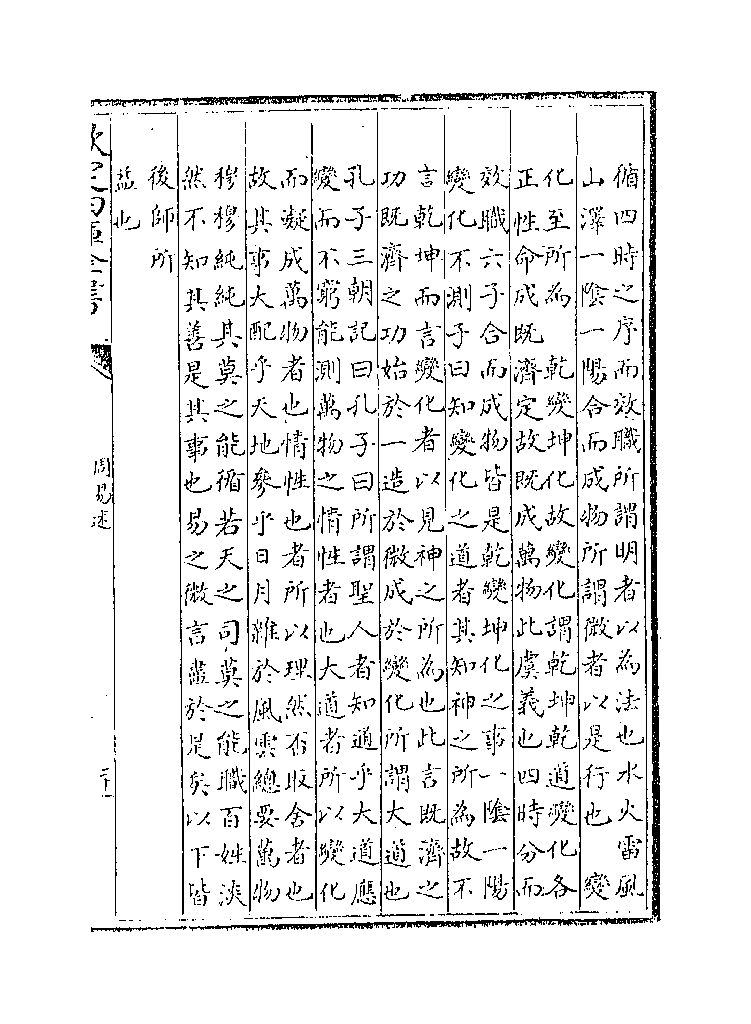 循四時之序而效職所謂明者以為法也水火雷風
山澤一陰一陽合而成物所謂微者以是行也 變
化至所為 乾變坤化故變化謂乾坤乾道變化各
正性命成既濟定故既成萬物此虞義也四時分而
效職六子合而成物皆是乾變坤化之事一陰一陽
變化不測子曰知變化之道者其知神之所為故不
言乾坤而言變化者以見神之所為也此言既濟之
功既濟之功始於一造於微成於變化所謂大道也
孔子三朝記曰孔子曰所謂聖人者知通乎大道應
變而不窮能測萬物之情性者也大道者所以變化
而凝成萬物者也情性也者所以理然否取舍者也
故其事大配乎天地參乎日月雜於風雲總要萬物
穆穆純純其莫之能循若天之司莫之能職百姓淡
然不知其善是其事也易之微言盡於是矣以下皆
後師所
益也
欽定四庫全書
周易述